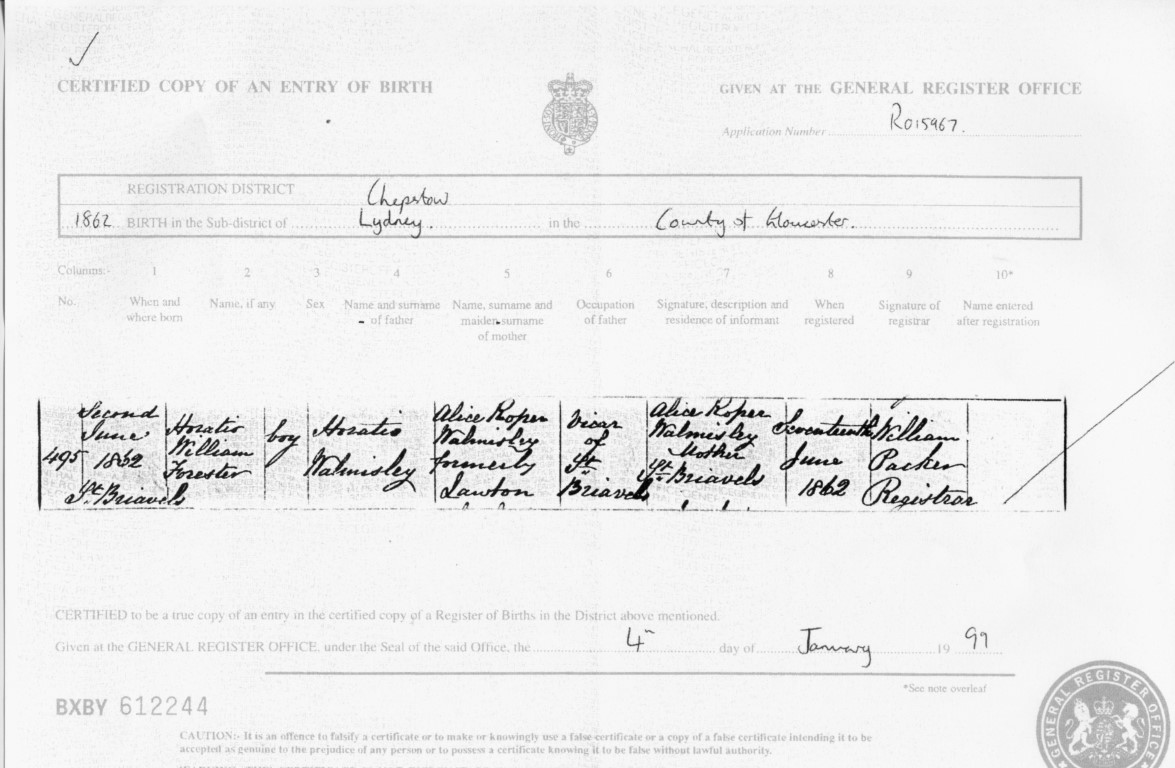 CERTIFIED COPY OF AN ENTRY OF BIRTH
GIVEN AT THE GENERAL REGISTER OFFICE
Application Number R015967.
REGISTRATION DISTRICT Chepstow
1862 BIRTH in the Sub-district of Lydney. in the County of Gloucester.
Columns:- 1 2 3 4 5 6 7 8 9 10*
No. When and where born Name, if any Sex Name and surname of father Name, surname and maiden surname of mother Occupation of father Signature, description and residence of informant When registered Signature of registrar Name entered after registration
495 Second June 1862 St. Briavels Horatio William Forester boy Horatio Walmisley Alice Roper Walmisley formerly Lawton Vicar of St. Briavels Alice Roper Walmisley Mother St. Briavels Seventeenth June 1862 William Packer Registrar
CERTIFIED to be a true copy of an entry in the certified copy of a Register of Births in the District above mentioned.
Given at the GENERAL REGISTER OFFICE, under the Seal of the said Office, the 4th day of January 19 99
*See note overleaf
BXBY 612244
CAUTION:- It is an offence to falsify a certificate or to make or knowingly use a false certificate or a copy of a false certificate intending it to be
accepted as genuine to the prejudice of any person or to possess a certificate knowing it to be false without lawful authority.
GENERAL REGISTER OFFICE